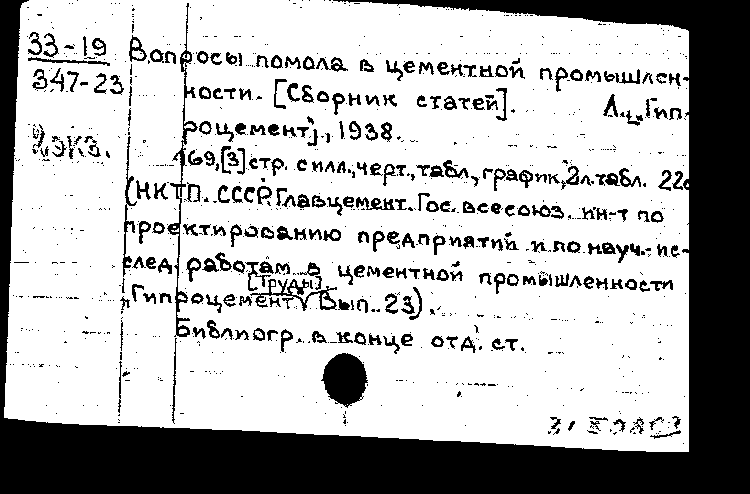 33-19
347-23
2 экз.
Вопросы помола в цементной промышлен-
ности. [Сборник статей]. Л., „Гип-
роцемент", 1938.
169, [3] стр. с илл., черт., табл., график, 2 л. табл. 22
(НКТП. СССР. Главцемент. Гос. всесоюз. ин-т по
проектированию предприятий и по науч.-ис-
след. работам в цементной промышленности
[Труды].
„Гипроцемент" Вып. 23).
Библиогр. в конце отд. ст.